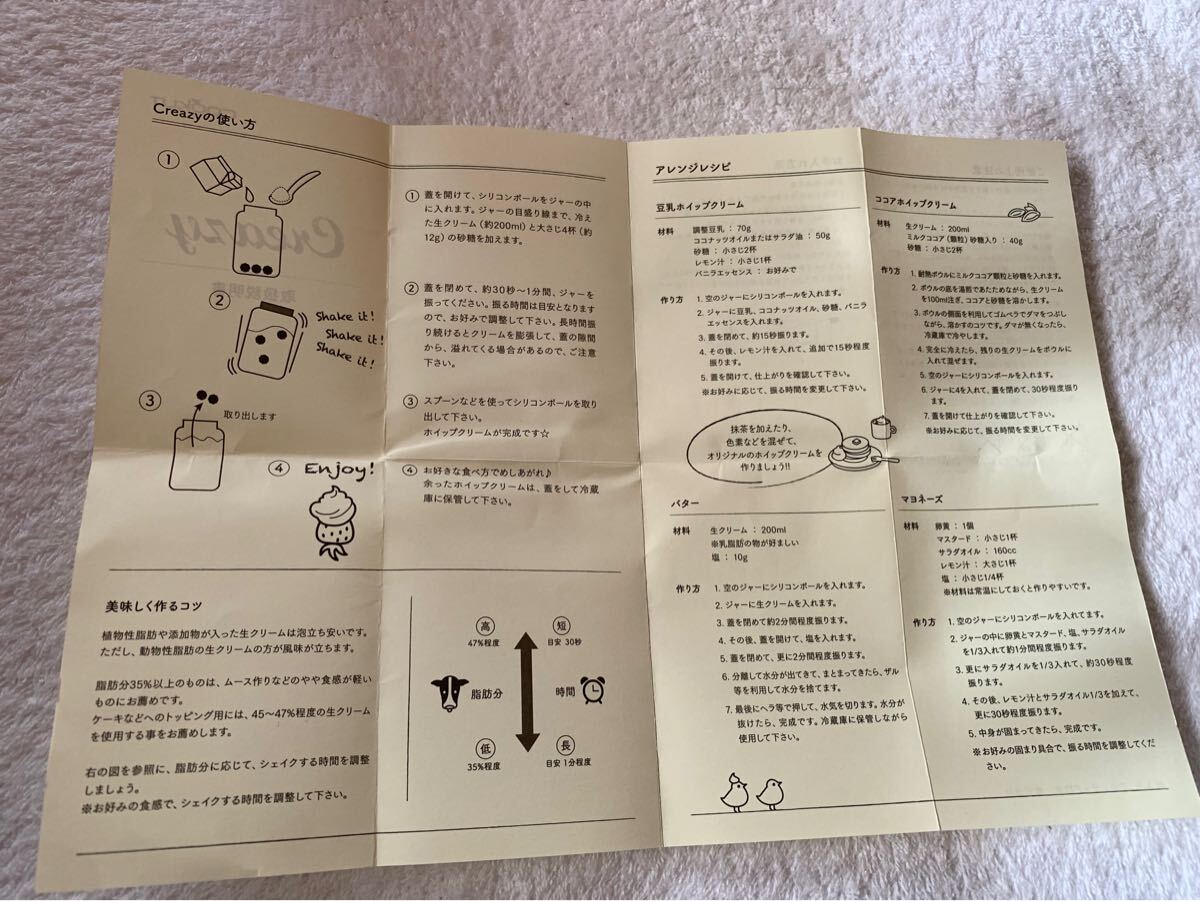 Creazyの使い方
①
②
Shake it!
Shake it!
Shake it!
③
取り出します
④
Enjoy!
① 蓋を開けて、シリコンボールをジャーの中
に入れます。ジャーの目盛り線まで、冷え
た生クリーム(約200ml)と大さじ4杯(約
12g)の砂糖を加えます。
② 蓋を閉めて、約30秒〜1分間、ジャーを
振ってください。振る時間は目安となります
ので、お好みで調整して下さい。長時間振
り続けるとクリームを膨張して、蓋の隙間
から、溢れてくる場合があるので、ご注意
下さい。
③ スプーンなどを使ってシリコンボールを取り
出して下さい。
ホイップクリームが完成です☆
④ お好きな食べ方でめしあがれ♪
余ったホイップクリームは、蓋をして冷蔵
庫に保管して下さい。
美味しく作るコツ
植物性脂肪や添加物が入った生クリームは泡立ち安いです。
ただし、動物性脂肪の生クリームの方が風味が立ちます。
脂肪分35%以上のものは、ムース作りなどのやや食感が軽い
ものにお薦めです。
ケーキなどへのトッピング用には、45〜47%程度の生クリーム
を使用する事をお薦めします。
右の図を参照に、脂肪分に応じて、シェイクする時間を調整
しましょう。
※お好みの食感で、シェイクする時間を調整して下さい。
高
47%程度
短
目安 30秒
脂肪分
時間
低
35%程度
長
目安 1分程度
アレンジレシピ
豆乳ホイップクリーム
材料 調整豆乳:70g
ココナッツオイルまたはサラダ油:50g
砂糖:小さじ2杯
レモン汁:小さじ1杯
バニラエッセンス:お好みで
作り方 1. 空のジャーにシリコンボールを入れます。
2. ジャーに豆乳、ココナッツオイル、砂糖、バニラ
エッセンスを入れます。
3. 蓋を閉めて、約15秒振ります。
4. その後、レモン汁を入れて、追加で15秒程度
振ります。
5. 蓋を開けて、仕上がりを確認して下さい。
※お好みに応じて、振る時間を変更して下さい。
抹茶を加えたり、
色素などを混ぜて、
オリジナルのホイップクリームを
作りましょう!!
ココアホイップクリーム
材料 生クリーム:200ml
ミルクココア(顆粒)砂糖入り:40g
砂糖:小さじ2杯
作り方 1. 耐熱ボウルにミルクココア顆粒と砂糖を入れます。
2. ボウルの底を湯煎であたためながら、生クリーム
を100ml注ぎ、ココアと砂糖を溶かします。
3. ボウルの側面を利用してゴムベラでダマをつぶし
ながら、溶かすのコツです。ダマが無くなったら、
冷蔵庫で冷やします。
4. 完全に冷えたら、残りの生クリームをボウルに
入れて混ぜます。
5. 空のジャーにシリコンボールを入れます。
6. ジャーに4を入れて、蓋を閉めて、30秒程度振り
ます。
7. 蓋を開けて仕上がりを確認して下さい。
※お好みに応じて、振る時間を変更して下さい。
バター
材料 生クリーム:200ml
※乳脂肪の物が好ましい
塩:10g
作り方 1. 空のジャーにシリコンボールを入れます。
2. ジャーに生クリームを入れます。
3. 蓋を閉めて約2分間程度振ります。
4. その後、蓋を開けて、塩を入れます。
5. 蓋を閉めて、更に2分間程度振ります。
6. 分離して水分が出てきて、まとまってきたら、ザル
等を利用して水分を捨てます。
7. 最後にヘラ等で押して、水気を切ります。水分が
抜けたら、完成です。冷蔵庫に保管しながら
使用して下さい。
マヨネーズ
材料 卵黄:1個
マスタード:小さじ1杯
サラダオイル:160cc
レモン汁:大さじ1杯
塩:小さじ1/4杯
※材料は常温にしておくと作りやすいです。
作り方 1. 空のジャーにシリコンボールを入れてます。
2. ジャーの中に卵黄とマスタード、塩、サラダオイル
を1/3入れて約1分間程度振ります。
3. 更にサラダオイルを1/3入れて、約30秒程度
振ります。
4. その後、レモン汁とサラダオイル1/3を加えて、
更に30秒程度振ります。
5. 中身が固まってきたら、完成です。
※お好みの固まり具合で、振る時間を調整してくだ
さい。